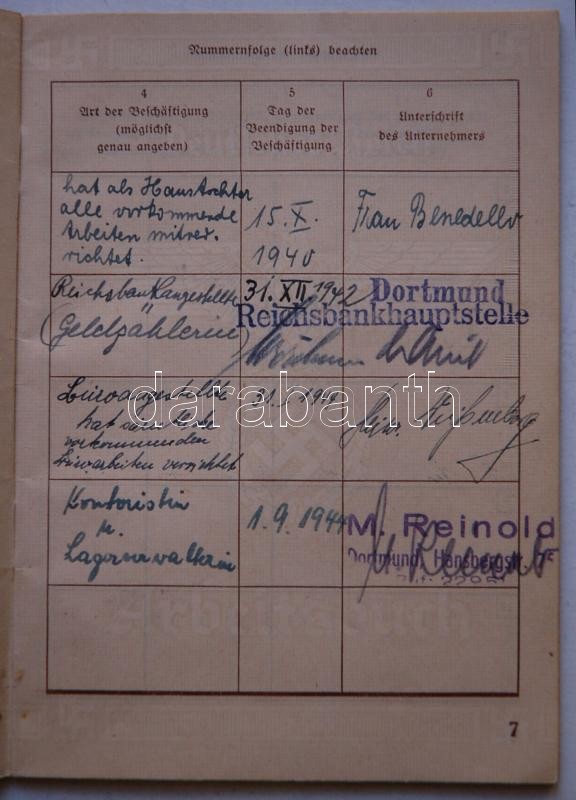 Nummernfolge (links) beachten
4
Art der Beschäftigung
(möglichst
genau angeben)
5
Tag der
Beendigung der
Beschäftigung
6
Unterschrift
des Unternehmers
hat als Haustochter
alle vorkommende
Arbeiten mitver.
richtet.
15. X.
1940
Frau
Reichsbankangestellte
(Geldzählerin)
31. XII. 1942
Dortmund
Reichsbankhauptstelle
Büroangestellte
hat
vorkommenden
Büroarbeiten verrichtet
darabanth
Kontoristin
u.
Lagerverwalterin
1. 9. 1944
M. Reinold
Dortmund, Hansbergstr.
Arbeitsbuch
7